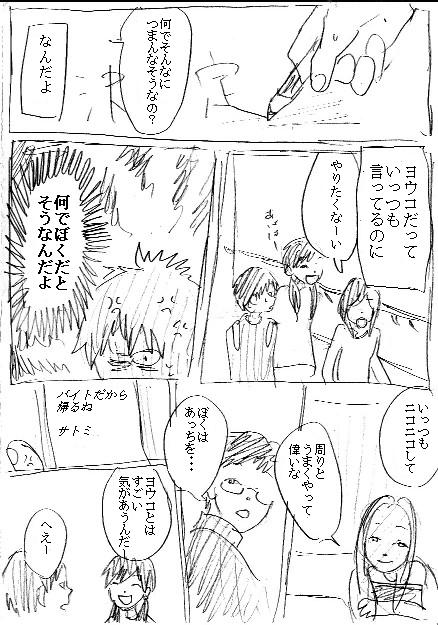 何でそんなに
つまんなそうなの？
なんだよ
ヨウコだって
いっつも
言ってるのに
やりたくなーい
何でぼくだと
そうなんだよ
いっつも
ニコニコして
周りと
うまくやって
偉いな
ぼくは
あっちを・・・
バイトだから
帰るね
サトミ
ヨウコとは
すごい
気があうんだ
へえー